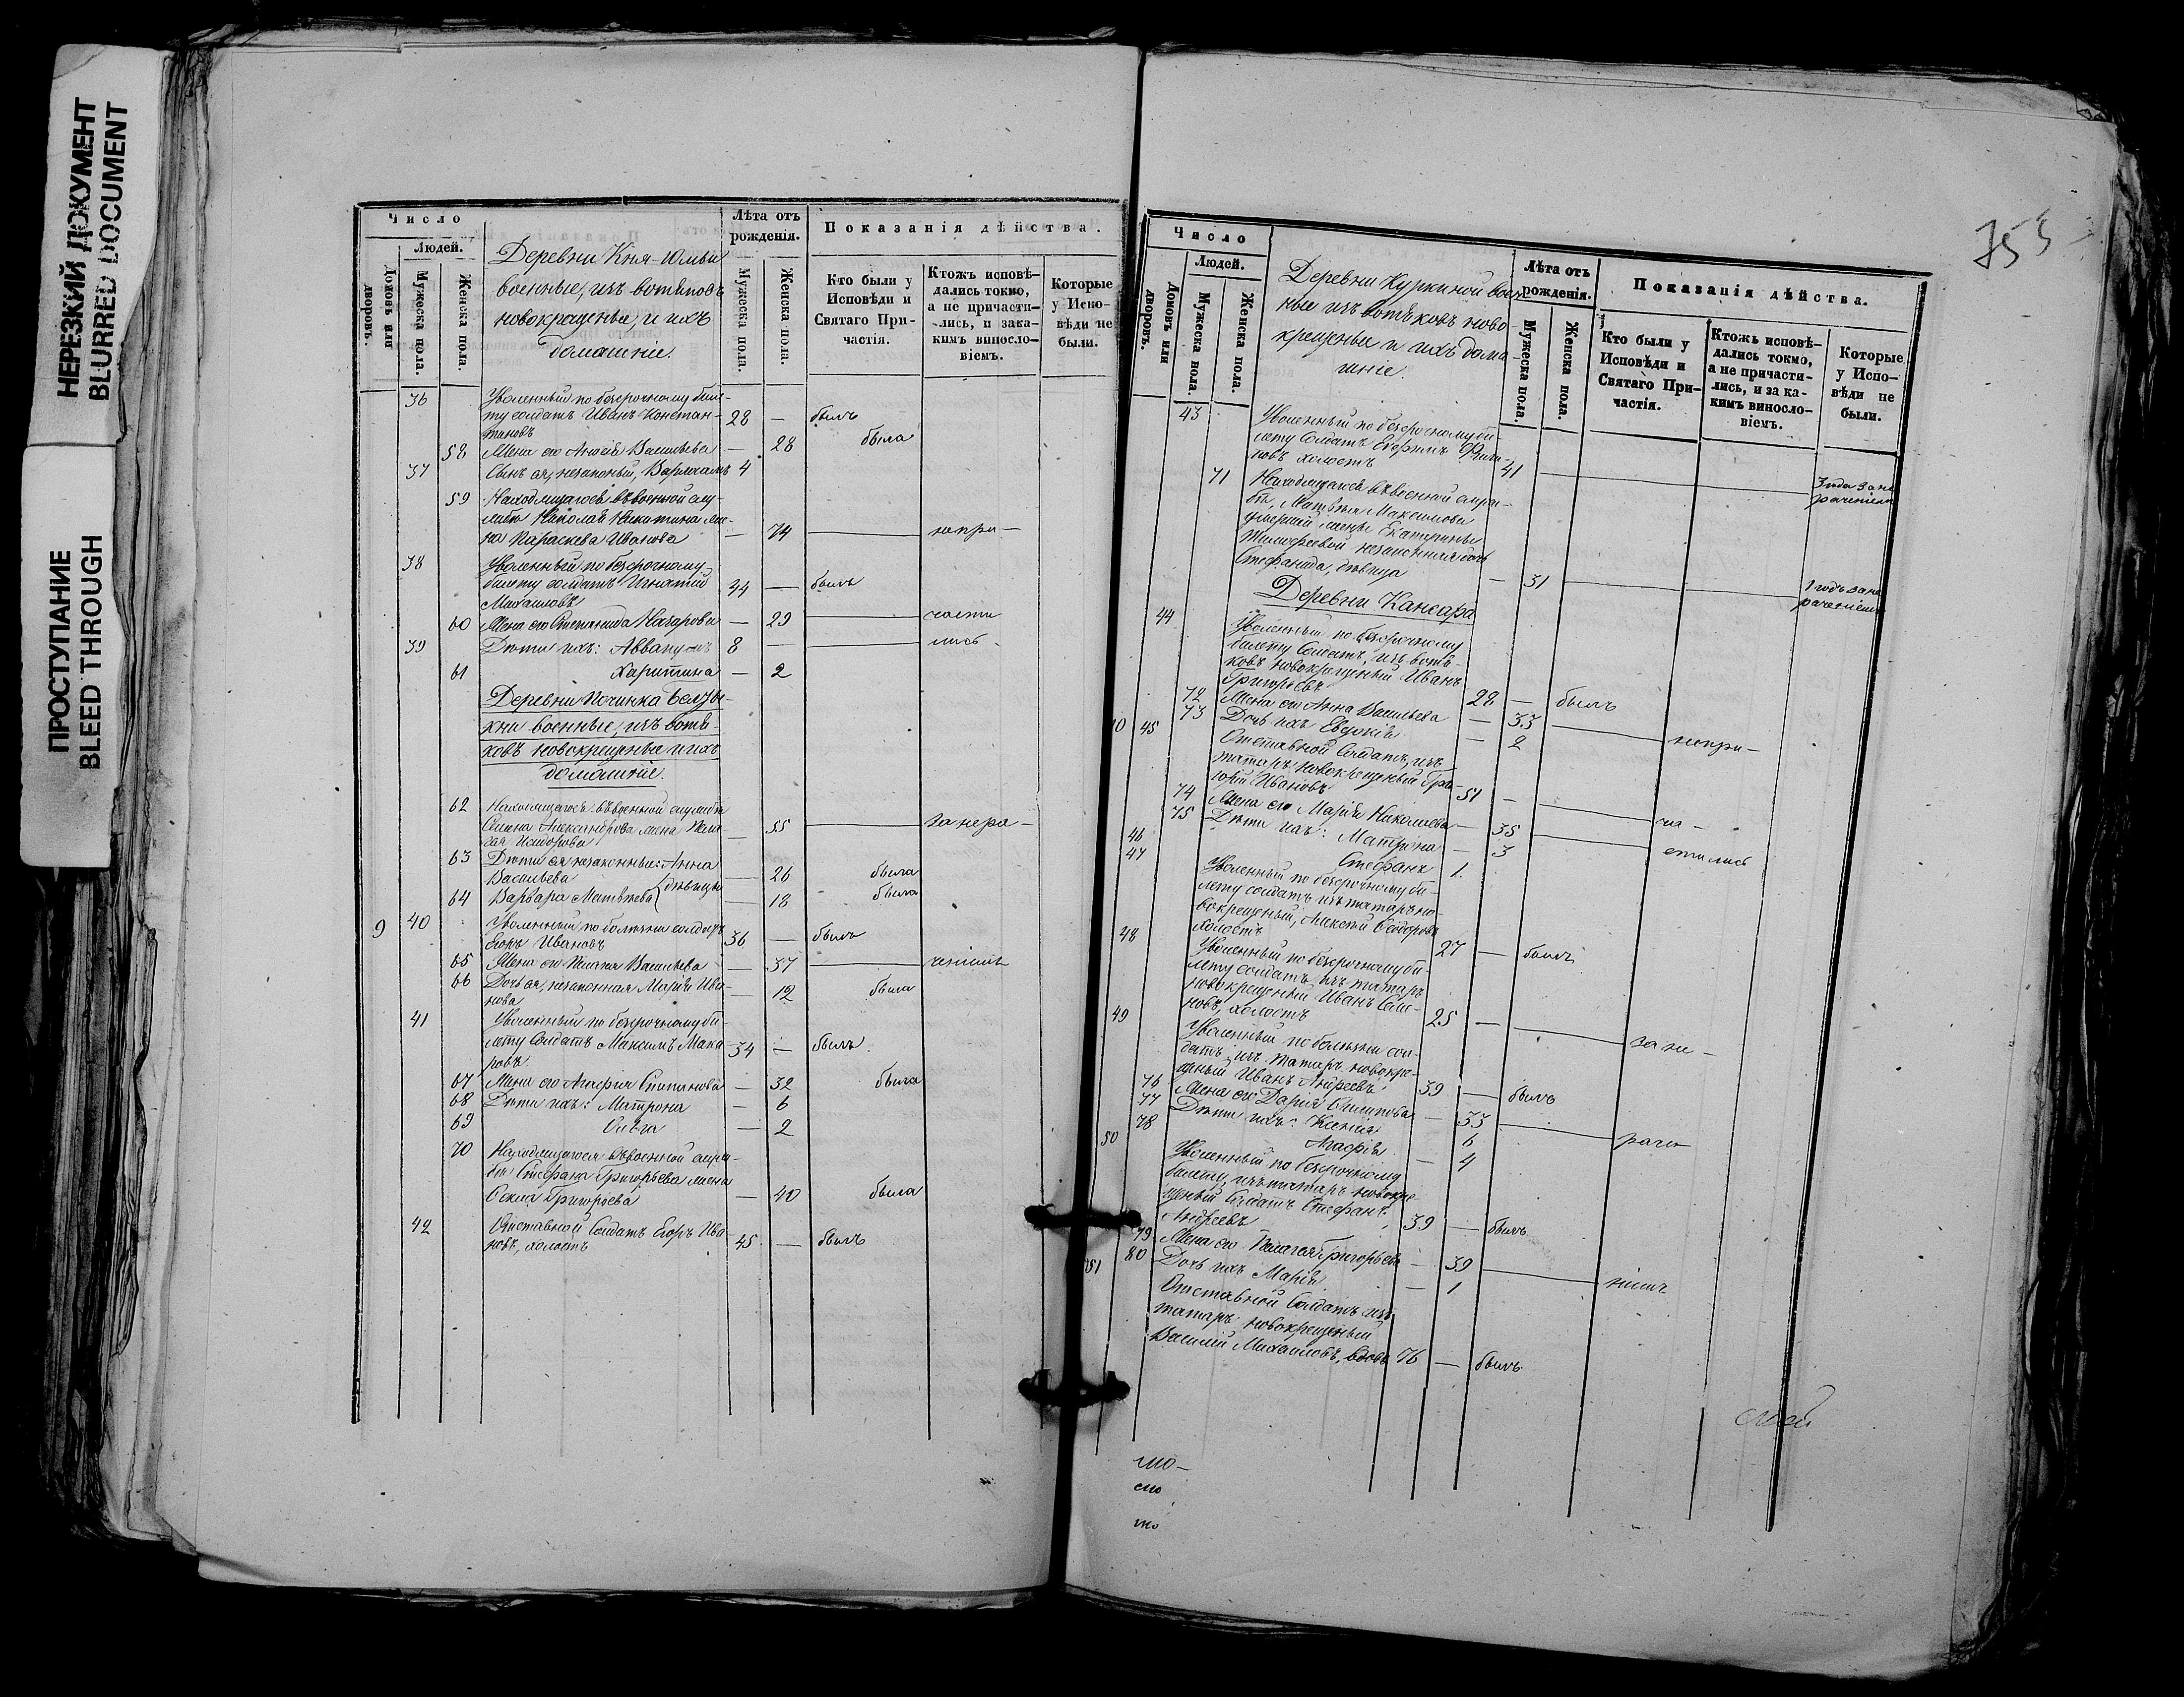 НЕРЕЗКИЙ ДОКУМЕНТ
BLURRED DOCUMENT
ПРОСТУПАНИЕ
BLEED THROUGH
Число
Людей.
Домовъ или дворовъ.
Мужеска пола.
Женска пола.
Деревни Кня-Юмьи
военные, изъ вотяковъ
новокрещены, и ихъ
домашніе.
Лѣта отъ рожденія.
Мужеска пола.
Женска пола.
Показанія дѣйства.
Кто были у Исповѣди и Святаго Причастія.
Ктожъ исповѣдались токмо, а не причастились, и за какимъ винословіемъ.
Которые у Исповѣди не были.
36 Уволенный по безсрочному биле-
ту солдатъ Иванъ Констан- 28 — былъ
тиновъ
58 Жена его Анисія Васильева — 28 была
37 Сынъ ея, незаконный, Варлаамъ 4
59 Находящагося въ военной слу-
жбѣ Николая Никитина же-
на Параскева Иванова — 74 — непри-
38 Уволенный по безсрочному
билету солдатъ Игнатій 44 — былъ
Михаиловъ
60 Жена его Степанида Назарова — 29 — части
39 Дѣти ихъ: Аввакумъ 8 — лись
61 Харитина — 2
Деревни Починка Белзы-
хни военные, изъ вотя-
ковъ новокрещены и ихъ
домашніе.
62 Находящагося въ военной службѣ
Семина Александрова жена Пела-
гія Исидорова — 55 — за нера-
63 Дѣти ея незаконные: Анна
Васильева — 26 была
64 Варвара Матвѣева дѣвицы — 18 была
9 40 Уволенный по болѣзни солдатъ
Егоръ Ивановъ 36 — былъ
65 Жена его Пелагія Васильева — 37 — ченіемъ
66 Дочь ея, незаконная Марія Ива-
нова — 12 была
41 Уволенный по безсрочному би-
лету Солдатъ Максимъ Мака- 34 — былъ
ровъ
67 Жена его Агафія Степанова — 32 была
68 Дѣти ихъ: Матрона — 6
69 Ольга — 2
70 Находящагося въ военной служ-
бѣ Стефана Григорьева жена
Фекла Григорьева — 40 была
42 Отставной Солдатъ Егоръ Ива-
новъ, холостъ 45 — былъ
755
Число
Людей.
Домовъ или дворовъ.
Мужеска пола.
Женска пола.
Деревни Куркиной воен-
ные изъ вотяковъ ново-
крещены и ихъ дома-
шніе.
Лѣта отъ рожденія.
Мужеска пола.
Женска пола.
Показанія дѣйства.
Кто были у Исповѣди и Святаго Причастія.
Ктожъ исповѣдались токмо, а не причастились, и за какимъ винословіемъ.
Которые у Исповѣди не были.
43 Уволенный по безсрочному би-
лету Солдатъ Ефремъ Фили-
повъ холостъ 41 — 3 года за не
раченіемъ
71 Находящагося въ военной служ-
бѣ, Матвѣя Максимова
жены Екатерины
Тимофеевой незаконная дочь
Стефанида, дѣвица — 31 — 1 годъ за не
раченіемъ
Деревни Кансара
44 Уволенный по безсрочному
билету Солдатъ, изъ вотя-
ковъ новокрещеный Иванъ
Григорьевъ 28 — былъ
72 Жена его Анна Васильева — 33 — непри-
73 Дочь ихъ Евдокія — 2
10 45 Отставной Солдатъ, изъ
татаръ новокрещеный Гри-
горій Ивановъ 51 — ча-
74 Жена его Марія Николаева — 35 — стились
75 Дѣти ихъ: Матрона — 3
46 Стефанъ 1
47 Уволенный по безсрочному би-
лету солдатъ изъ татаръ но-
вокрещеный, Алексѣй Ѳеодоровъ
холостъ 27 — былъ
48 Уволенный по безсрочному би-
лету солдатъ изъ татаръ
новокрещеный Иванъ Семе-
новъ, холостъ 25 — за не-
49 Уволенный по болѣзни сол-
датъ изъ татаръ новокре-
щеный Иванъ Андреевъ 39 — былъ
76 Жена его Дарія Филипова — 33 — раче-
77 Дѣти ихъ: Ксенія 6
78 Агафія — 4
50 Уволенный по безсрочному
билету, изъ татаръ новокре-
щеный Солдатъ Стефанъ
Андреевъ 39 — былъ
79 Жена его Пелагея Григорьева — 39 — ніемъ
80 Дочь ихъ Марія — 1
51 Отставной Солдатъ изъ
татаръ новокрещеный
Василій Михаиловъ, вдовъ 76 — былъ